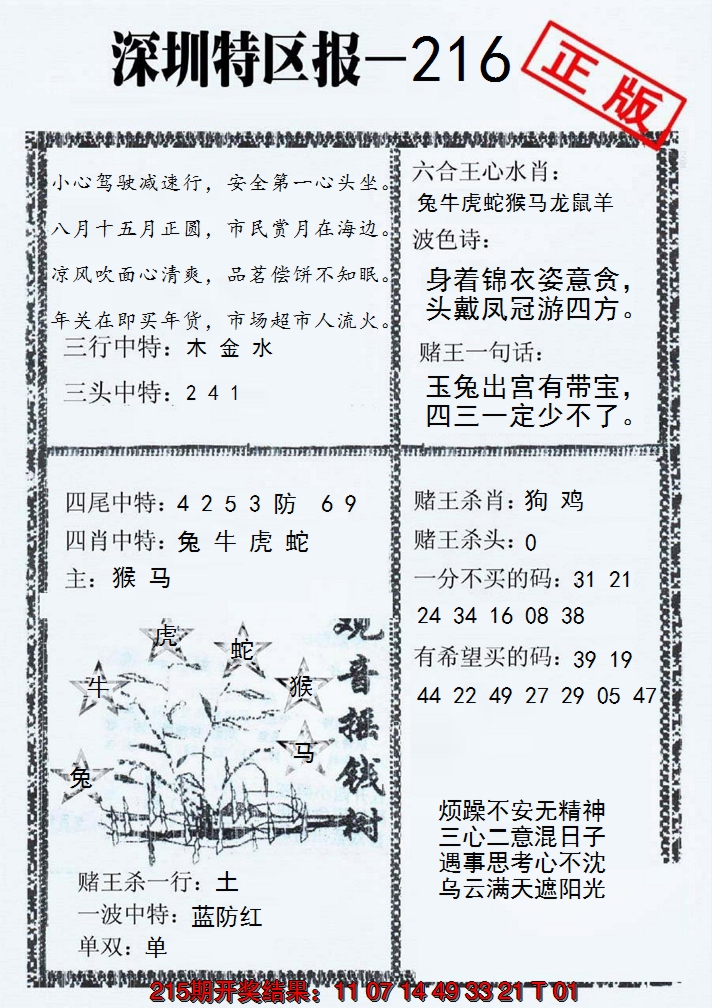 深圳特区报—216
正版
小心驾驶减速行，安全第一心头坐。
八月十五月正圆，市民赏月在海边。
凉风吹面心清爽，品茗偿饼不知眠。
年关在即买年货，市场超市人流火。
三行中特：木 金 水
三头中特：2 4 1
六合王心水肖：
兔牛虎蛇猴马龙鼠羊
波色诗：
身着锦衣姿意贪，
头戴凤冠游四方。
赌王一句话：
玉兔出宫有带宝，
四三一定少不了。
四尾中特：4 2 5 3 防 6 9
四肖中特：兔 牛 虎 蛇
主：猴 马
虎
蛇
牛
猴
马
兔
观音摇钱树
赌王杀一行：土
一波中特：蓝防红
单双：单
赌王杀肖：狗 鸡
赌王杀头：0
一分不买的码：31 21
24 34 16 08 38
有希望买的码：39 19
44 22 49 27 29 05 47
烦躁不安无精神
三心二意混日子
遇事思考心不沈
乌云满天遮阳光
215期开奖结果：11 07 14 49 33 21 T 01